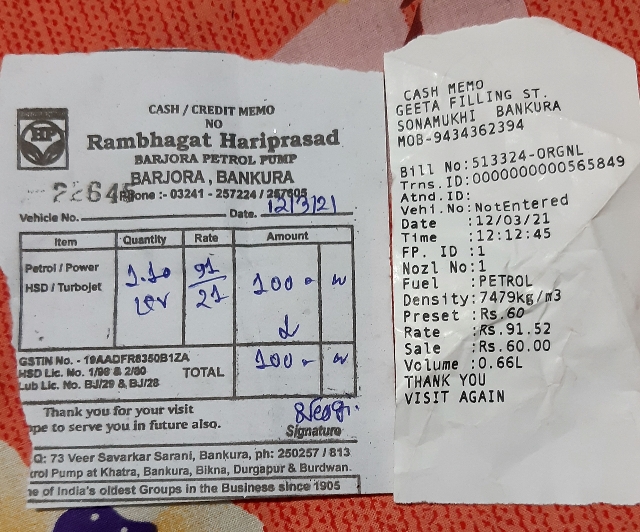 HP
CASH / CREDIT MEMO
NO
Rambhagat Hariprasad
BARJORA PETROL PUMP
BARJORA, BANKURA
Phone :- 03241 - 257224 / 257605
22645
Vehicle No. Date. 12/3/21
Item Quantity Rate Amount
Petrol / Power
HSD / Turbojet
1.10 91/21 100
GSTIN No. - 19AADFR8350B1ZA
HSD Lic. No. 1/98 & 2/80 TOTAL 100
Lub Lic. No. BJ/29 & BJ/28
Thank you for your visit
ope to serve you in future also.
Signature
Q: 73 Veer Savarkar Sarani, Bankura, ph: 250257 / 813
trol Pump at Khatra, Bankura, Bikna, Durgapur & Burdwan.
ne of India's oldest Groups in the Business since 1905
CASH MEMO
GEETA FILLING ST.
SONAMUKHI BANKURA
MOB-9434362394
Bill No:513324-ORGNL
Trns.ID:0000000000565849
Atnd.ID:
Vehi.No:NotEntered
Date :12/03/21
Time :12:12:45
FP. ID :1
Nozl No:1
Fuel :PETROL
Density:7479kg/m3
Preset :Rs.60
Rate :Rs.91.52
Sale :Rs.60.00
Volume :0.66L
THANK YOU
VISIT AGAIN